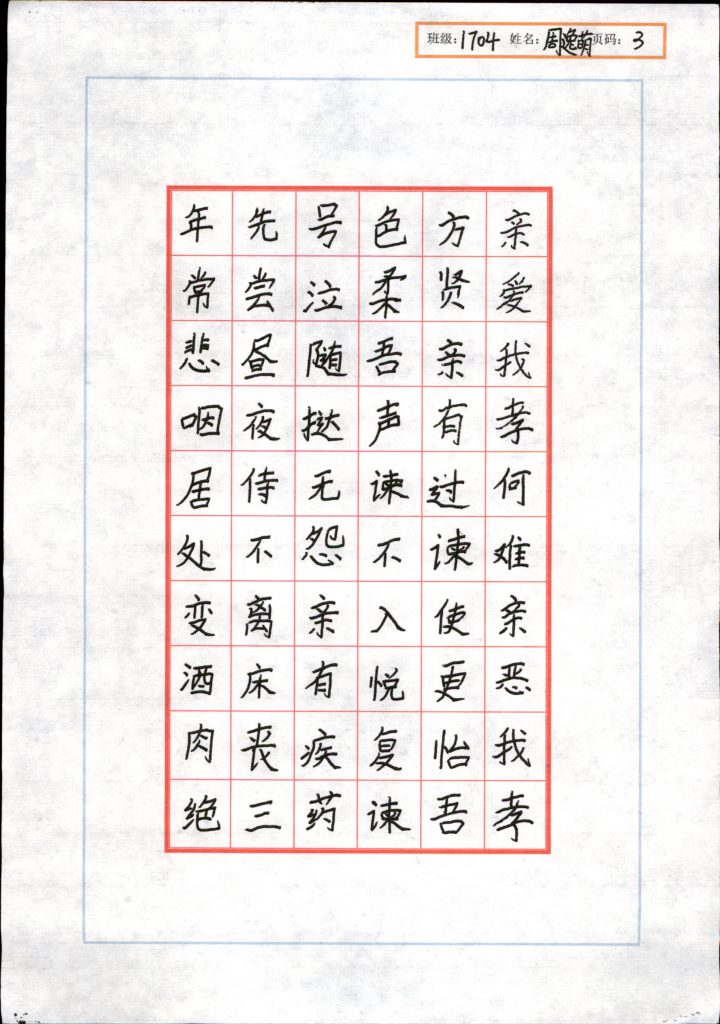 班级：1704 姓名：周逸萌 页码：3
亲爱我孝何难亲恶我孝
方贤亲有过谏使更怡吾
色柔吾声谏不入悦复谏
号泣随挞无怨亲有疾药
先尝昼夜侍不离床丧三
年常悲咽居处变酒肉绝